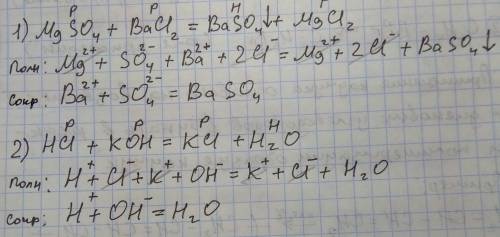 1) MgSO₄ + BaCl₂ = BaSO₄↓ + MgCl₂
Р Р Н Р
Полн: Mg²⁺ + SO₄²⁻ + Ba²⁺ + 2Cl⁻ = Mg²⁺ + 2Cl⁻ + BaSO₄↓
Сокр: Ba²⁺ + SO₄²⁻ = BaSO₄
2) HCl + KOH = KCl + H₂O
Р Р Р Н
Полн: H⁺ + Cl⁻ + K⁺ + OH⁻ = K⁺ + Cl⁻ + H₂O
Сокр: H⁺ + OH⁻ = H₂O